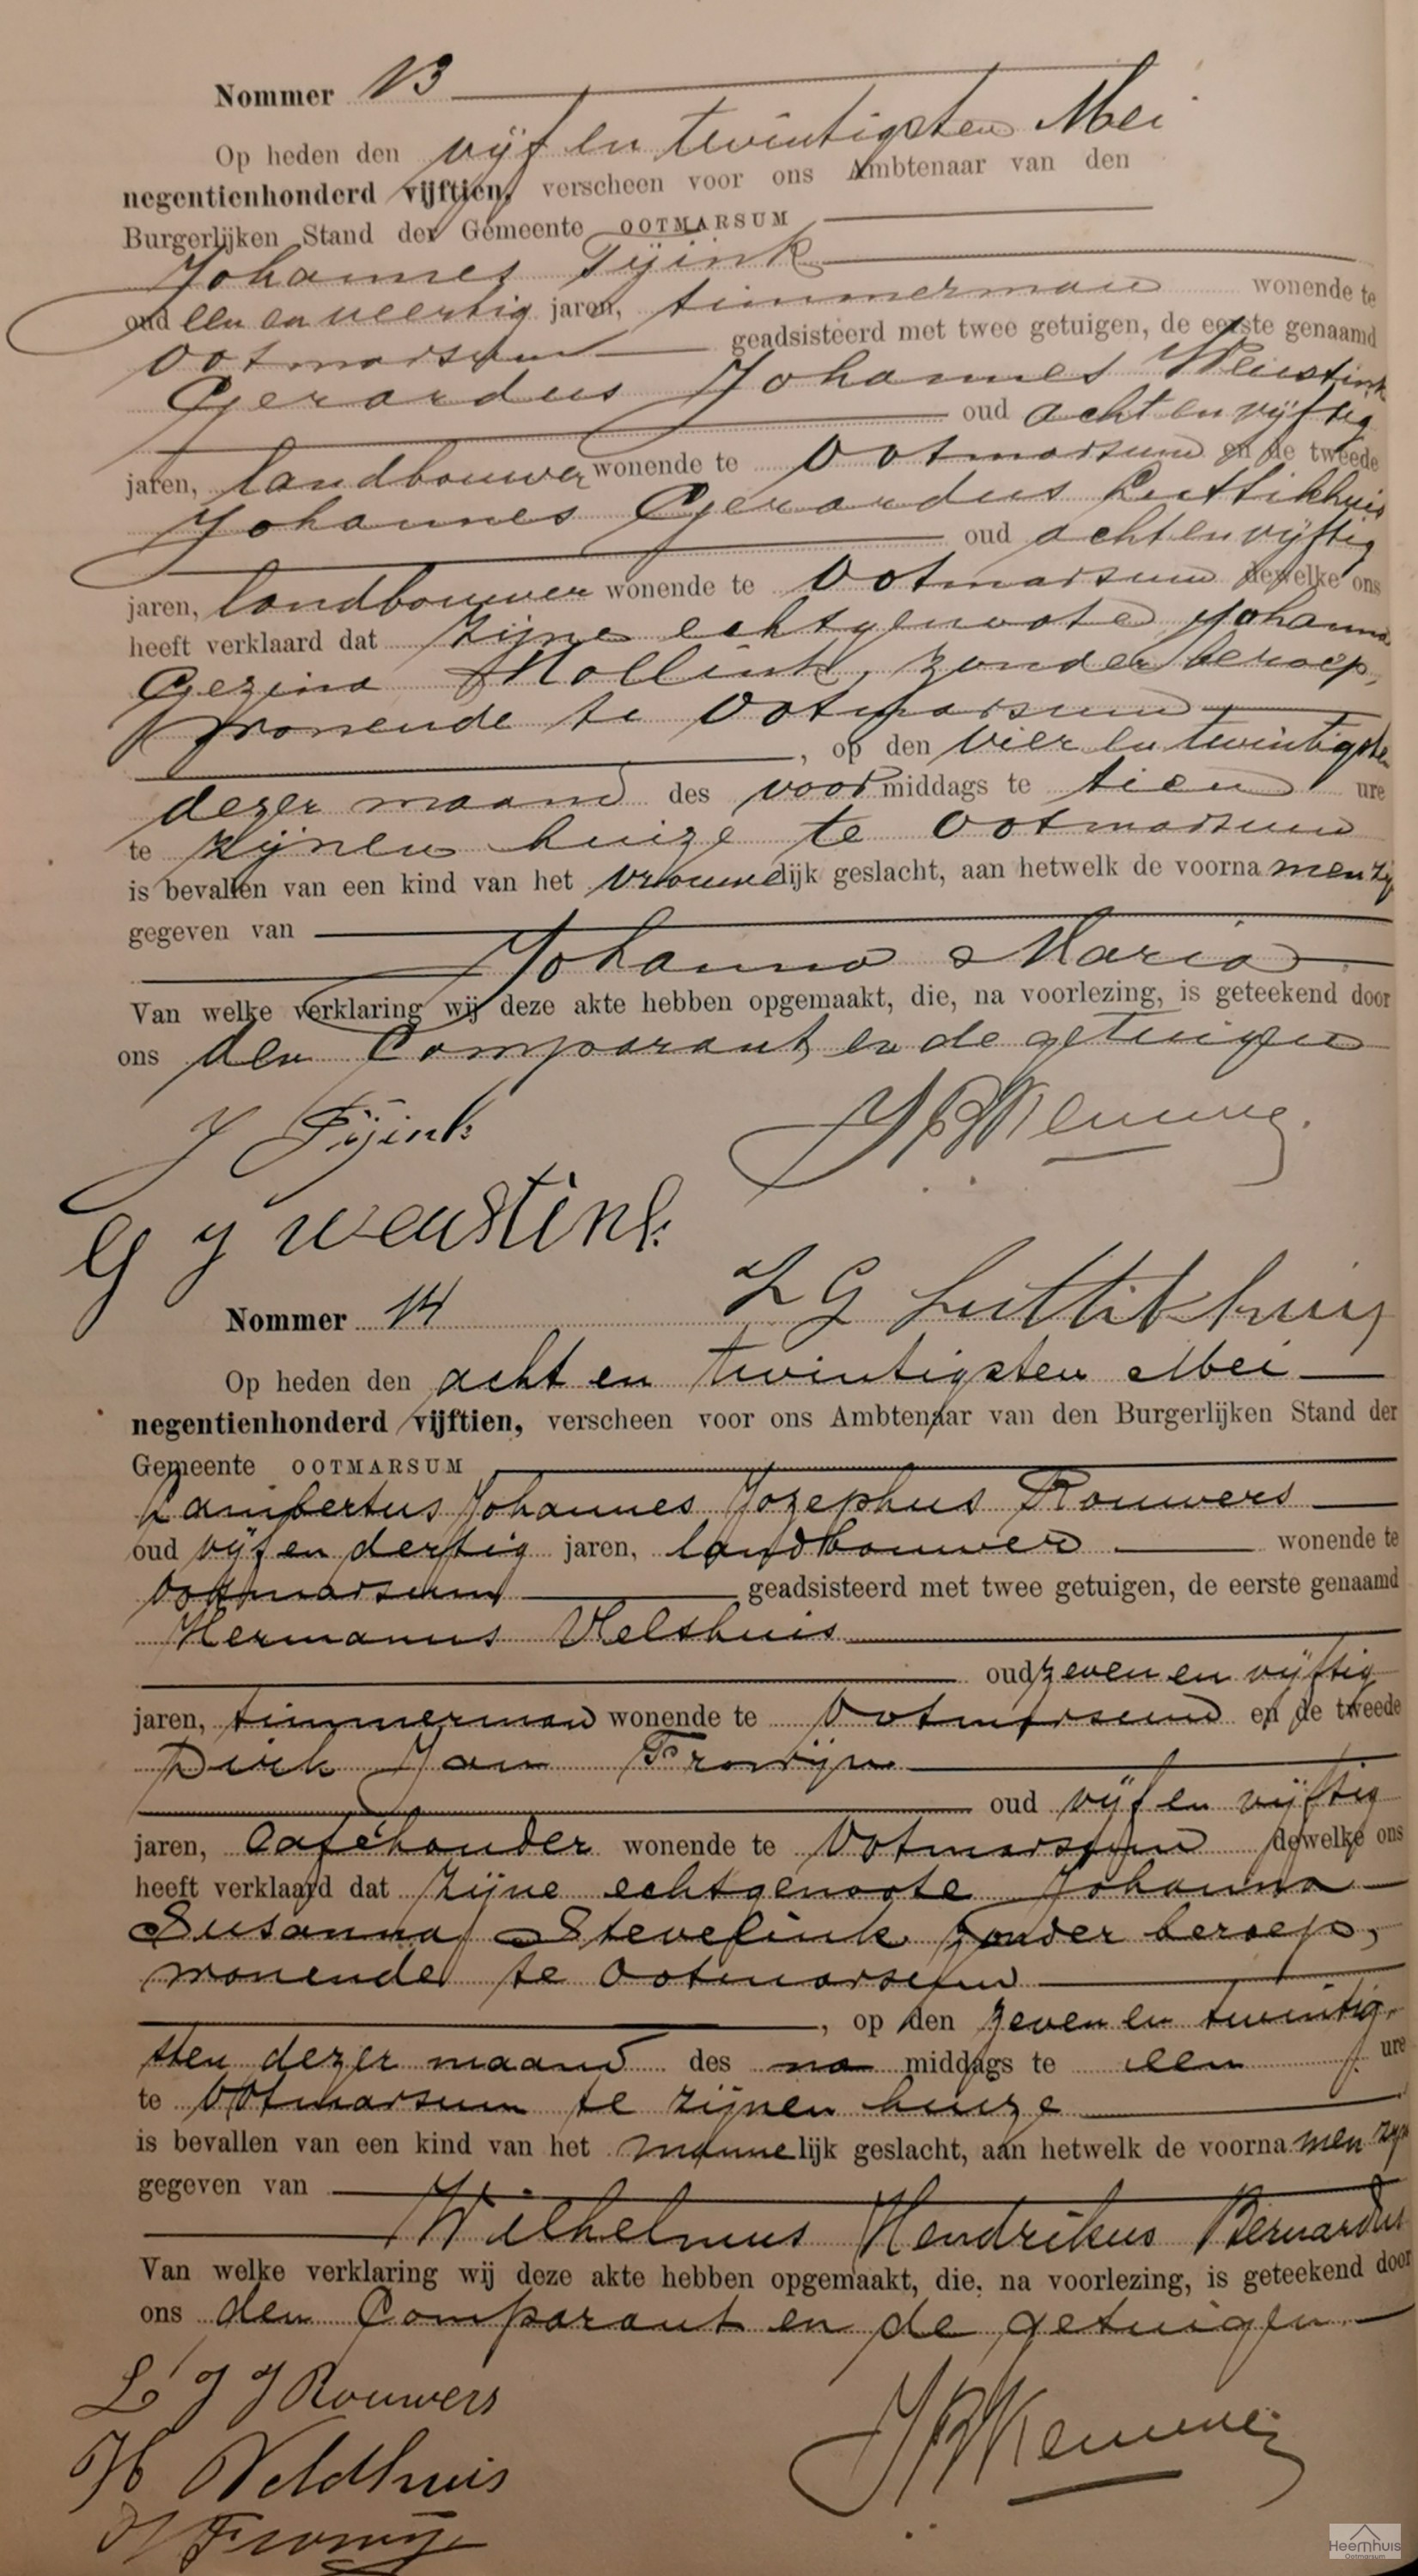 Nommer 13
Op heden den vijf en twintigsten Mei
negentienhonderd vijftien, verscheen voor ons Ambtenaar van den
Burgerlijken Stand der Gemeente OOTMARSUM
Johannes Tijink
oud een en veertig jaren, timmerman wonende te
Ootmarsum geadsisteerd met twee getuigen, de eerste genaamd
Gerardus Johannes Weustink
oud acht en vijftig
jaren, landbouwer wonende te Ootmarsum en de tweede
Johannes Gerardus Luttikhuis
oud acht en vijftig
jaren, landbouwer wonende te Ootmarsum dewelke ons
heeft verklaard dat zijne echtgenoote Johanna
Gezina Mollink, zonder beroep,
wonende te Ootmarsum
, op den vier en twintigsten
dezer maand des voormiddags te tien ure
te zijnen huize te Ootmarsum
is bevallen van een kind van het vrouwelijk geslacht, aan hetwelk de voornamen zijn
gegeven van
Johanna Maria
Van welke verklaring wij deze akte hebben opgemaakt, die, na voorlezing, is geteekend door
ons den Comparant en de getuigen
J Tijink
G J Weustink
J G Luttikhuis
Nommer 14
Op heden den acht en twintigsten Mei
negentienhonderd vijftien, verscheen voor ons Ambtenaar van den Burgerlijken Stand der
Gemeente OOTMARSUM
Lambertus Johannes Jozephus Rouwers
oud vijf en dertig jaren, landbouwer wonende te
Ootmarsum geadsisteerd met twee getuigen, de eerste genaamd
Hermannus Veldhuis
oud zeven en vijftig
jaren, timmerman wonende te Ootmarsum en de tweede
Dirk Jan Frowijn
oud vijf en vijftig
jaren, Caféhouder wonende te Ootmarsum dewelke ons
heeft verklaard dat zijne echtgenoote Johanna
Susanna Stevelink zonder beroep,
wonende te Ootmarsum
, op den zeven en twintig-
sten dezer maand des na middags te een ure
te Ootmarsum te zijnen huize
is bevallen van een kind van het mannelijk geslacht, aan hetwelk de voornamen zijn
gegeven van
Wilhelmus Hendrikus Bernardus
Van welke verklaring wij deze akte hebben opgemaakt, die, na voorlezing, is geteekend door
ons den Comparant en de getuigen
L J J Rouwers
H Veldhuis
Frowijn
Heemhuis
Ootmarsum